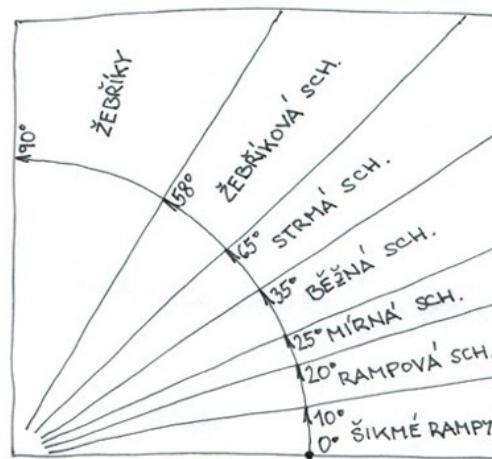 90°
ŽEBŘÍKY
58°
ŽEBŘÍKOVÁ SCH.
65°
STRMÁ SCH.
35°
BĚŽNÁ SCH.
25°
MÍRNÁ SCH.
20°
RAMPOVÁ SCH.
10°
0°
ŠIKMÉ RAMPY